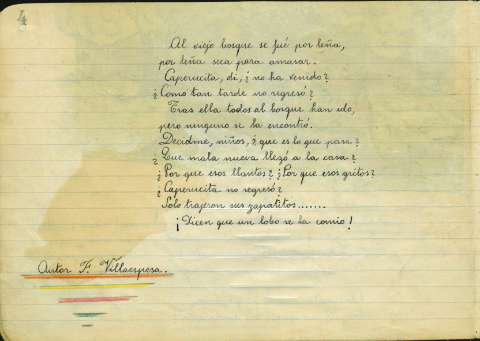 4
Al viejo bosque se fué por leña,
por leña seca para amasar.
Caperucita, di, ¿no ha venido?
¿Como tan tarde no regresó?
Tras ella todos al bosque han ido,
pero ninguno se la encontró.
Decidme, niños, ¿que es lo que pasa?
¿Que mala nueva llegó a la casa?
¿Por que esos llantos? ¿Por que esos gritos?
¿Caperucita no regresó?
Solo trajeron sus zapatitos.......
¡Dicen que un lobo se la comio!
Autor F. Villaespesa.